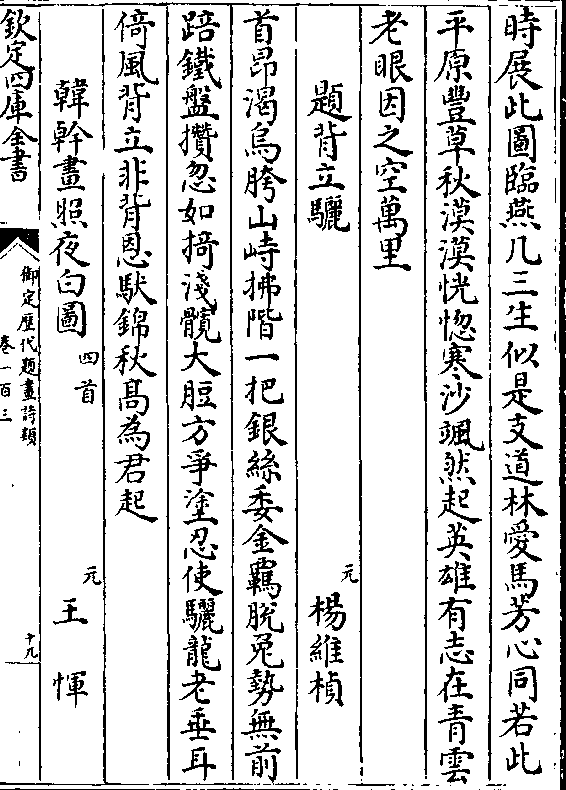 時展此圖臨燕几三生似是支道林愛馬芳心同若此
平原豐草秋漠漠恍惚寒沙颯然起英雄有志在青雲
老眼因之空萬里
題背立驪 元 楊維楨
首昂渇烏胯山峙拂階一把銀絲委金羈脱兎勢無前
踣鐵盤攢忽如掎淺髖大脰方爭塗忍使驪龍老垂耳
倚風背立非背恩馱錦秋髙為君起
韓幹畫照夜白圖 四首 元 王惲
欽定四庫全書
御定歴代題畫詩類
卷一百三
十九